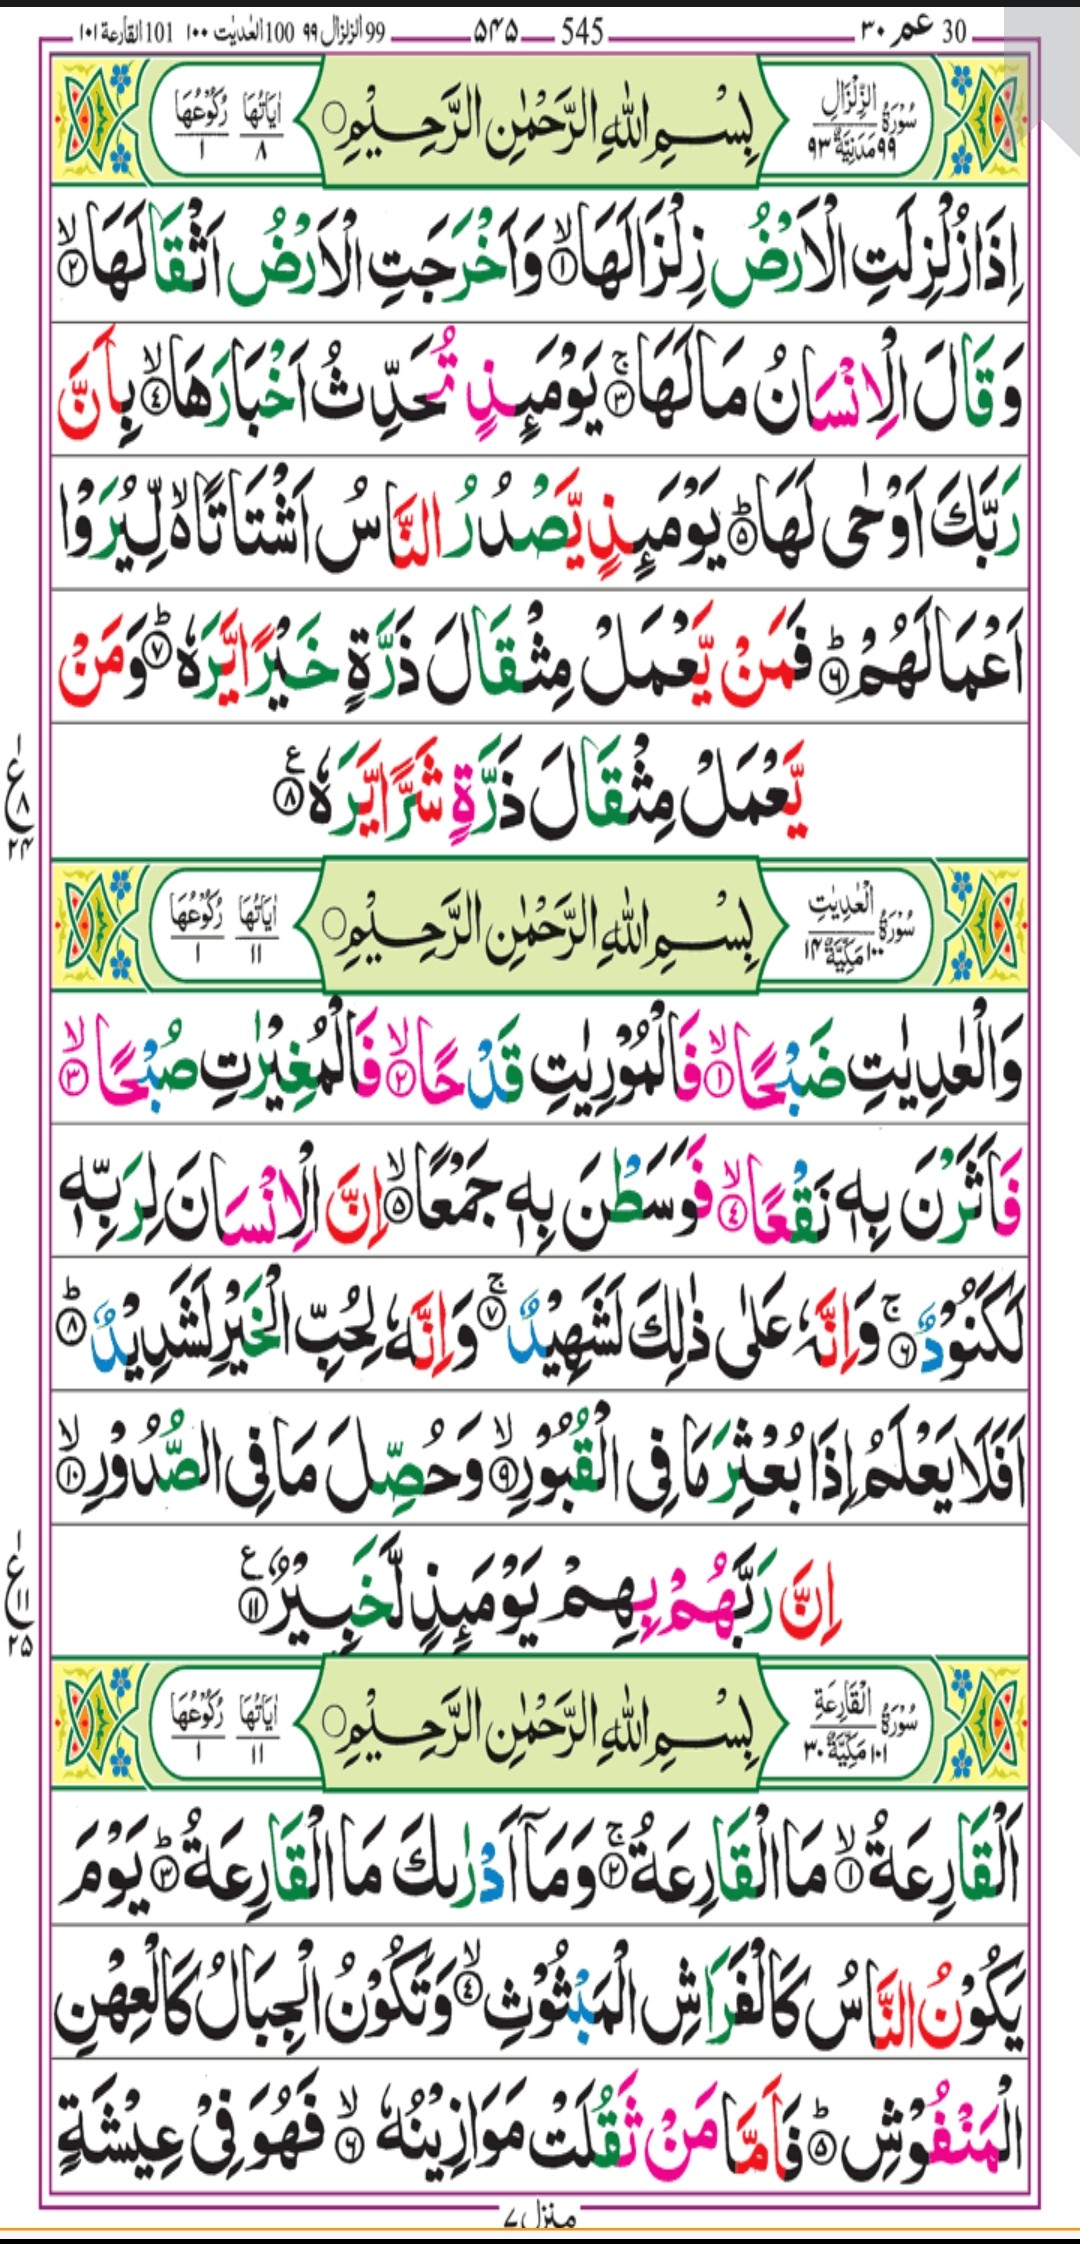 30 عم ۳۰ 545 ۵۴۵ 99 الزلزال ۹۹ 100 العٰدیٰت ۱۰۰ 101 القارعة ۱۰۱
سُوْرَةُ الزِّلْزَالِ ۹۹ مَدَنِيَّةٌ ۹۳ بِسْمِ اللّٰهِ الرَّحْمٰنِ الرَّحِيْمِ○ اٰيَاتُهَا ۸ رُكُوْعُهَا ۱
اِذَا زُلْزِلَتِ الْاَرْضُ زِلْزَالَهَا ۙ‏﴿۱﴾ وَاَخْرَجَتِ الْاَرْضُ اَثْقَالَهَا ۙ‏﴿۲﴾
وَقَالَ الْاِنْسَانُ مَا لَهَا ۚ‏﴿۳﴾ يَوْمَىِٕذٍ تُحَدِّثُ اَخْبَارَهَا ۙ‏﴿۴﴾ بِاَنَّ
رَبَّكَ اَوْحٰى لَهَا ؕ‏﴿۵﴾ يَوْمَىِٕذٍ يَّصْدُرُ النَّاسُ اَشْتَاتًا ۙ۬ لِّيُرَوْا
اَعْمَالَهُمْ ؕ‏﴿۶﴾ فَمَنْ يَّعْمَلْ مِثْقَالَ ذَرَّةٍ خَيْرًا يَّرَهٗ ؕ‏﴿۷﴾ وَمَنْ
يَّعْمَلْ مِثْقَالَ ذَرَّةٍ شَرًّا يَّرَهٗ ﴿۸﴾ ع
ع ۱ ۸ ۲۴
سُوْرَةُ الْعٰدِيٰتِ ۱۰۰ مَكِّيَّةٌ ۱۴ بِسْمِ اللّٰهِ الرَّحْمٰنِ الرَّحِيْمِ○ اٰيَاتُهَا ۱۱ رُكُوْعُهَا ۱
وَالْعٰدِيٰتِ ضَبْحًا ۙ‏﴿۱﴾ فَالْمُوْرِيٰتِ قَدْحًا ۙ‏﴿۲﴾ فَالْمُغِيْرٰتِ صُبْحًا ۙ‏﴿۳﴾
فَاَثَرْنَ بِهٖ نَقْعًا ۙ‏﴿۴﴾ فَوَسَطْنَ بِهٖ جَمْعًا ۙ‏﴿۵﴾ اِنَّ الْاِنْسَانَ لِرَبِّهٖ
لَكَنُوْدٌ ۚ‏﴿۶﴾ وَاِنَّهٗ عَلٰى ذٰلِكَ لَشَهِيْدٌ ۚ‏﴿۷﴾ وَاِنَّهٗ لِحُبِّ الْخَيْرِ لَشَدِيْدٌ ؕ‏﴿۸﴾
اَفَلَا يَعْلَمُ اِذَا بُعْثِرَ مَا فِى الْقُبُوْرِ ۙ‏﴿۹﴾ وَحُصِّلَ مَا فِى الصُّدُوْرِ ۙ‏﴿۱۰﴾
اِنَّ رَبَّهُمْ بِهِمْ يَوْمَىِٕذٍ لَّخَبِيْرٌ ﴿۱۱﴾ ع
ع ۱ ۱۱ ۲۵
سُوْرَةُ الْقَارِعَةِ ۱۰۱ مَكِّيَّةٌ ۳۰ بِسْمِ اللّٰهِ الرَّحْمٰنِ الرَّحِيْمِ○ اٰيَاتُهَا ۱۱ رُكُوْعُهَا ۱
اَلْقَارِعَةُ ۙ‏﴿۱﴾ مَا الْقَارِعَةُ ۚ‏﴿۲﴾ وَمَاۤ اَدْرٰىكَ مَا الْقَارِعَةُ ؕ‏﴿۳﴾ يَوْمَ
يَكُوْنُ النَّاسُ كَالْفَرَاشِ الْمَبْثُوْثِ ۙ‏﴿۴﴾ وَتَكُوْنُ الْجِبَالُ كَالْعِهْنِ
الْمَنْفُوْشِ ؕ‏﴿۵﴾ فَاَمَّا مَنْ ثَقُلَتْ مَوَازِيْنُهٗ ۙ‏﴿۶﴾ فَهُوَ فِىْ عِيْشَةٍ
منزل ۷